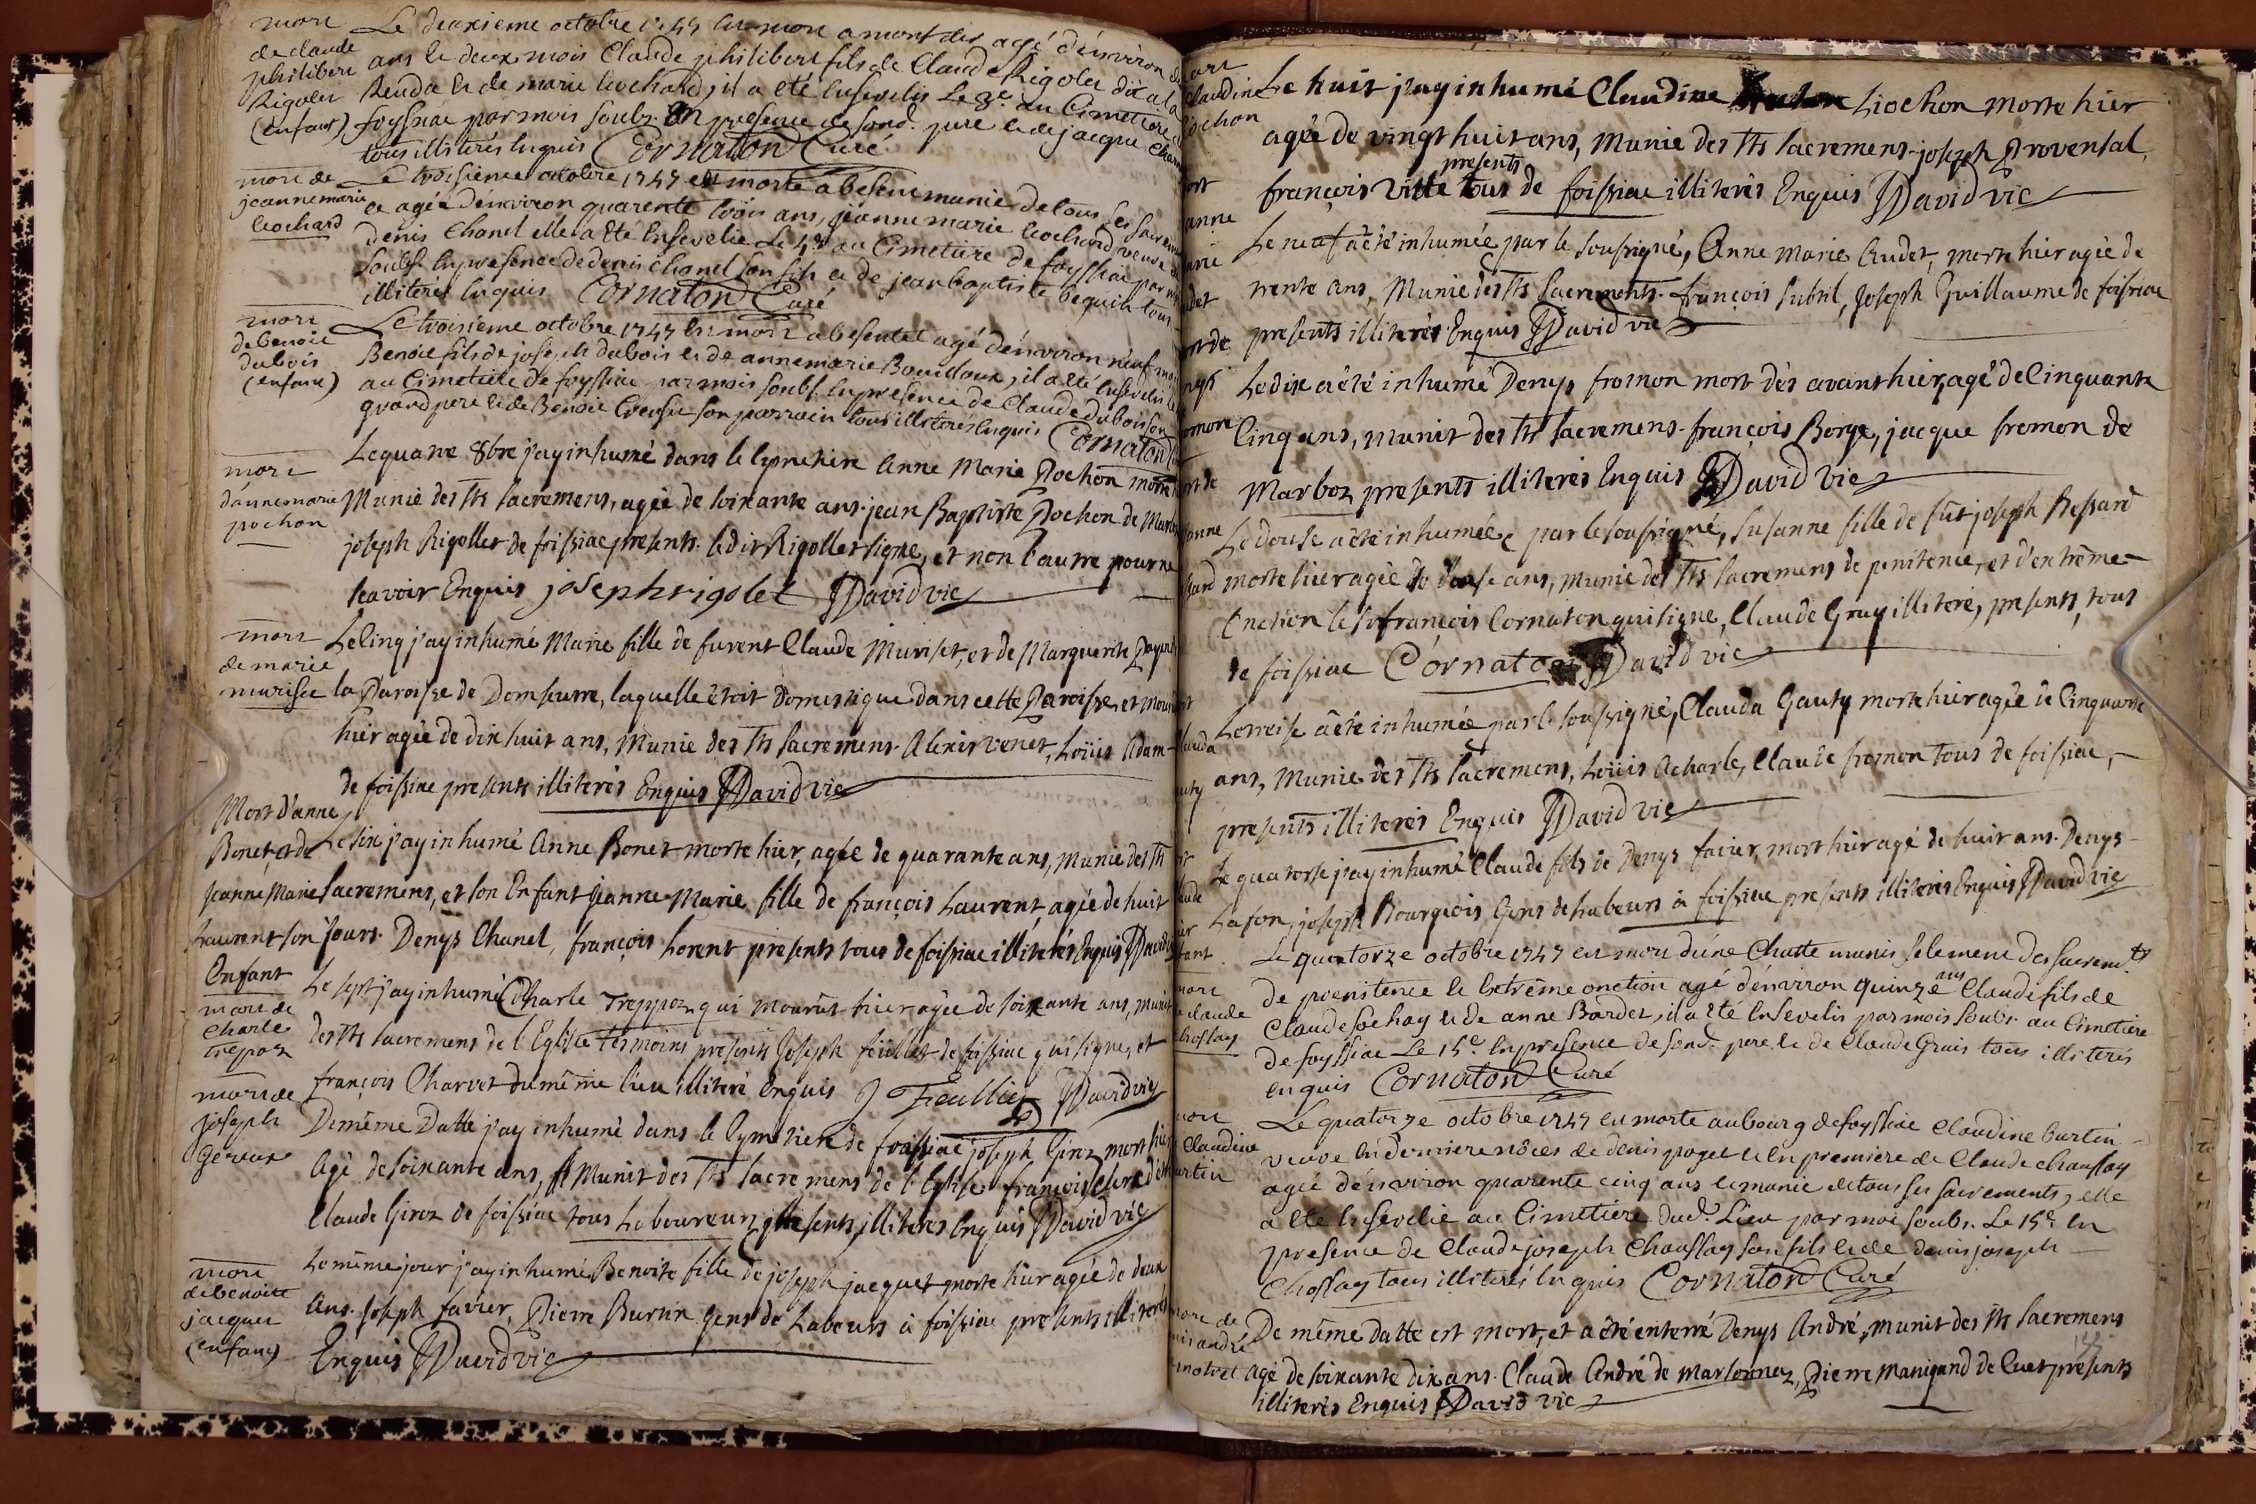 mort
de claude
philibert
Rigolet
(enfant)
Le deuxieme octobre 1747 est mort a montdes agé d'énviron
ans et deux mois Claude philibert fils de Claude Rigolet dit a la
Renda et de marie Cochard, il a eté Ensevelis Le 3e. au Cimetiere
foyssiac par mois soubs. En presence de sond. pere et de jacque Chanel
tous illiterés Enquis Cornaton Curé
mort de
jeanne marie
Cochard
Le troisieme octobre 1747 est morte a besent munie de tous ses sacrem
et agée d'énviron quarente trois ans, jeanne marie Cochard veuve de
denis Chanel elle a eté Ensevelie Le 4e au Cimetiere de foyssiac par mois
soubs. En presence de denis Chanel son fils et de jean baptiste bequin tous
illiterés Enquis Cornaton Curé
mort
de benoit
dubois
(enfant)
Le troisieme octobre 1747 Est mort a besentet agé d'énviron neuf mois
Benoit fils de joseph dubois et de anne marie Bourdoux, il a eté Ensevelis le
au Cimetiere de foyssiac par mois soubs. En presence de Claude dubois son
grand pere et de Benoit son parrain tous illiterés Enquis Cornaton
mort
d'anne marie
pochon
Le quatre 8bre j'ay inhumé dans le Cymetiere Anne Marie Pochon morte
Munie des Sts sacremens, agée de soixante ans. jean Baptiste Pochon de Marboz
joseph Rigollet de foissiac presents. ledit Rigollet signe, et non l'autre pour ne
scavoir Enquis joseph rigolet David vic
mort
de marie
murisse
Le Cinq j'ay inhumé Marie fille de furent Claude Muriset, et de Marguerite Payant
la Paroisse de Domseurre, laquelle étoit Domestique dans cette Paroisse, et mourut
hier agée de dix huit ans, Munie des Sts sacremens. Alexis Venet, Loüis Adam
de foissiac presents illiterés Enquis David vic
Mort d'anne
Bonet, et de
Jeanne Marie
Laurent son
Enfant
Le six j'ay inhumé Anne Bonet morte hier, agée de quarante ans, munie des Sts
sacremens, et son Enfant Jeanne Marie fille de françois Laurent agée de huit
jours. Denys Chanel, françois lorent presents tous de foissiac illiterés Enquis David vic
mort de
charle
trepoz
Le sept j'ay inhumé Charle Treppoz qui mourut hier agée de soixante ans, munit
des Sts sacremens de l'Eglise temoins presents Joseph feüillet de foissiac qui signe, et
françois Charvet du même lieu illiteré Enquis J Feuillet David vic
mort de
joseph
Gereux
De même Datte j'ay inhumé dans le Cymetiere de foissiac joseph Giroz mort hier
Agé de soixante ans, Munit des Sts sacremens de l'Eglise. françois
Claude Giroz de foissiac tous Laboureurz presents illiterés Enquis David vic
mort
de benoite
jacquet
(enfant)
Le même jour j'ay inhumé Benoite fille de joseph jacquet morte hier agée de deux
Ans. Joseph favier, Pierre Burtin gens de Labeurs à foissiac presents illiterés
Enquis David vic
mort
Claudine
Liochon
Le huit j'ay inhumé Claudine Liochon morte hier
agée de vingt huit ans, Munie des Sts sacremens. joseph Provensal,
françois Ville presents tous de foissiac illiterés Enquis David vic
Le neuf a été inhumée par le soussigné, Anne Marie Cudet, morte hier agée de
trente ans, Munie des Sts Sacrements. françois subtil, Joseph Guillaume de foissiac
presents illiterés Enquis David vic
Le dix a été inhumé Denys fromon mort dès avant hier, agé de Cinquante
Cinq ans, munit des Sts sacremens. françois Borge, jacque fromon de
Marboz presents illiterés Enquis David vic
Le douse a été inhumée par le soussigné, Susanne fille de fût joseph Bessard
morte hier agée de douse ans, munie des Sts sacremens de penitence, et d'extrême
Onction le Sr françois Cornaton qui signe, Claude Gray illiteré, presents, tous
de foissiac Cornaton David vic
Le treise a été inhumée par le soussigné, Clauda Gauty morte hier agée de Cinquante
ans, Munie des Sts sacremens, Loüis Acharle, Claude fromon tous de foissiac,
presents illiterés Enquis David vic
Le quatorse j'ay inhumé Claude fils de Denys favier, mort hier agé de huit ans. Denys
Lafon, joseph Bourgeois Gens de Labeurs à foissiac presents illiterés Enquis David vic
mort
de claude
chossay
Le quatorze octobre 1747 est mort d'une Chutte munis selement des sacremts
de poenitence et Extrême onction agé d'énviron quinze ans Claude fils de
Claude sochay et de anne Bardet, il a eté Ensevelis par mois soubs. au Cimetiere
de foyssiac Le 15e. En presence de sond. pere, et de Claude Grais tous illiterés
enquis Cornaton Curé
mort
Claudine
burtin
Le quatorze octobre 1747 est morte au bourg de foyssiac Claudine burtin
veuve En derniere nôces de denis poget et En premiere de Claude chaussay
agée d'énviron quarente cinq ans et munie de tous ses sacrements, elle
a eté Ensevelie au Cimetiere dud. Lieu par moi soubs. Le 15e. En
presence de Claude joseph Chaussay son fils et de denis joseph
Chossay tous illiterés Enquis Cornaton Curé
mort de
denis andré
De même Datte est mort, et a été enterré Denys André, munit des Sts sacremens
agé de soixante dix ans. Claude André de marsonnaz, Pierre Manigand de Cuet presents
illiterés Enquis David vic